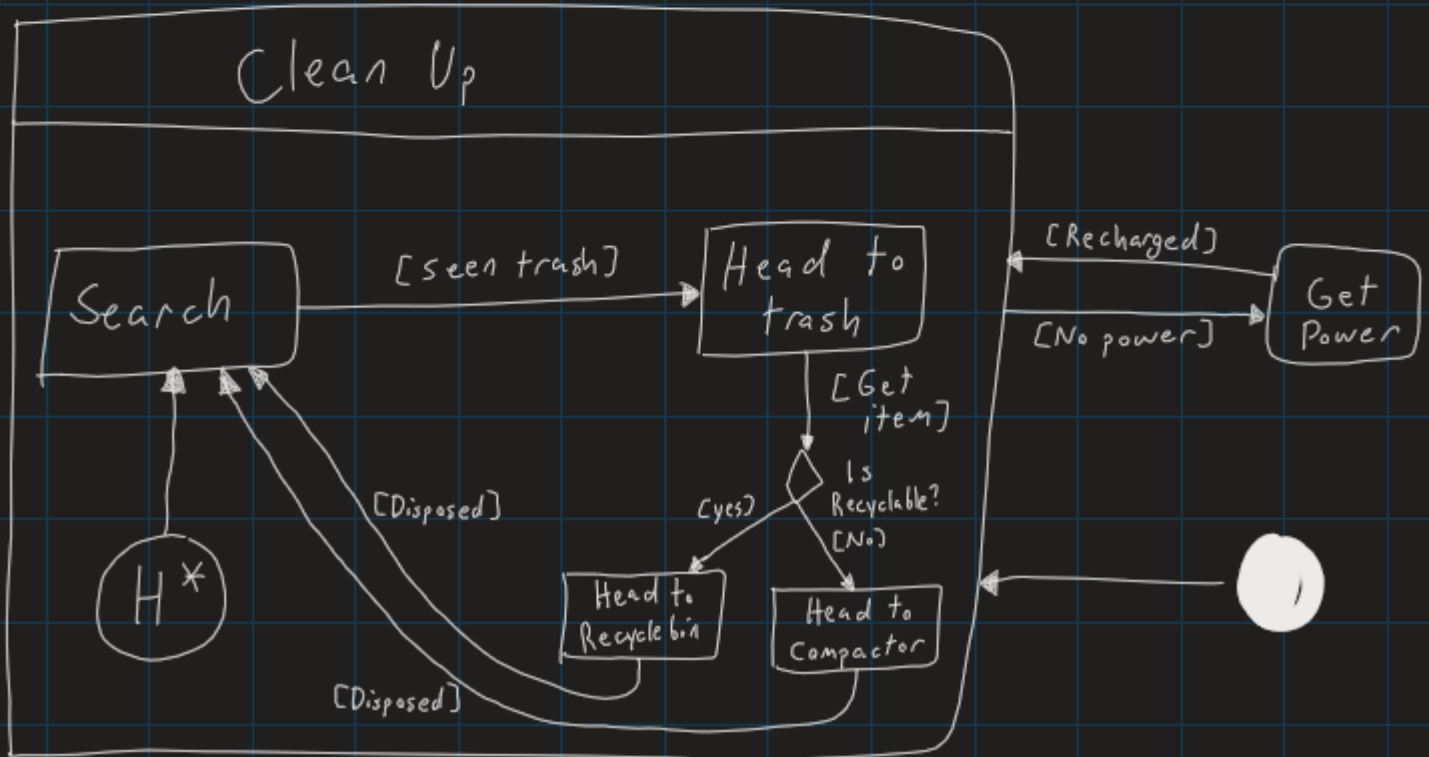 Clean Up
[Recharged]
[seen trash]
Head to
trash
Search
Get
Power
[No power]
[Get
item]
Is
Recyclable?
[Disposed]
[yes]
[No]
H*
Head to
Recycle bin
Head to
Compactor
[Disposed]